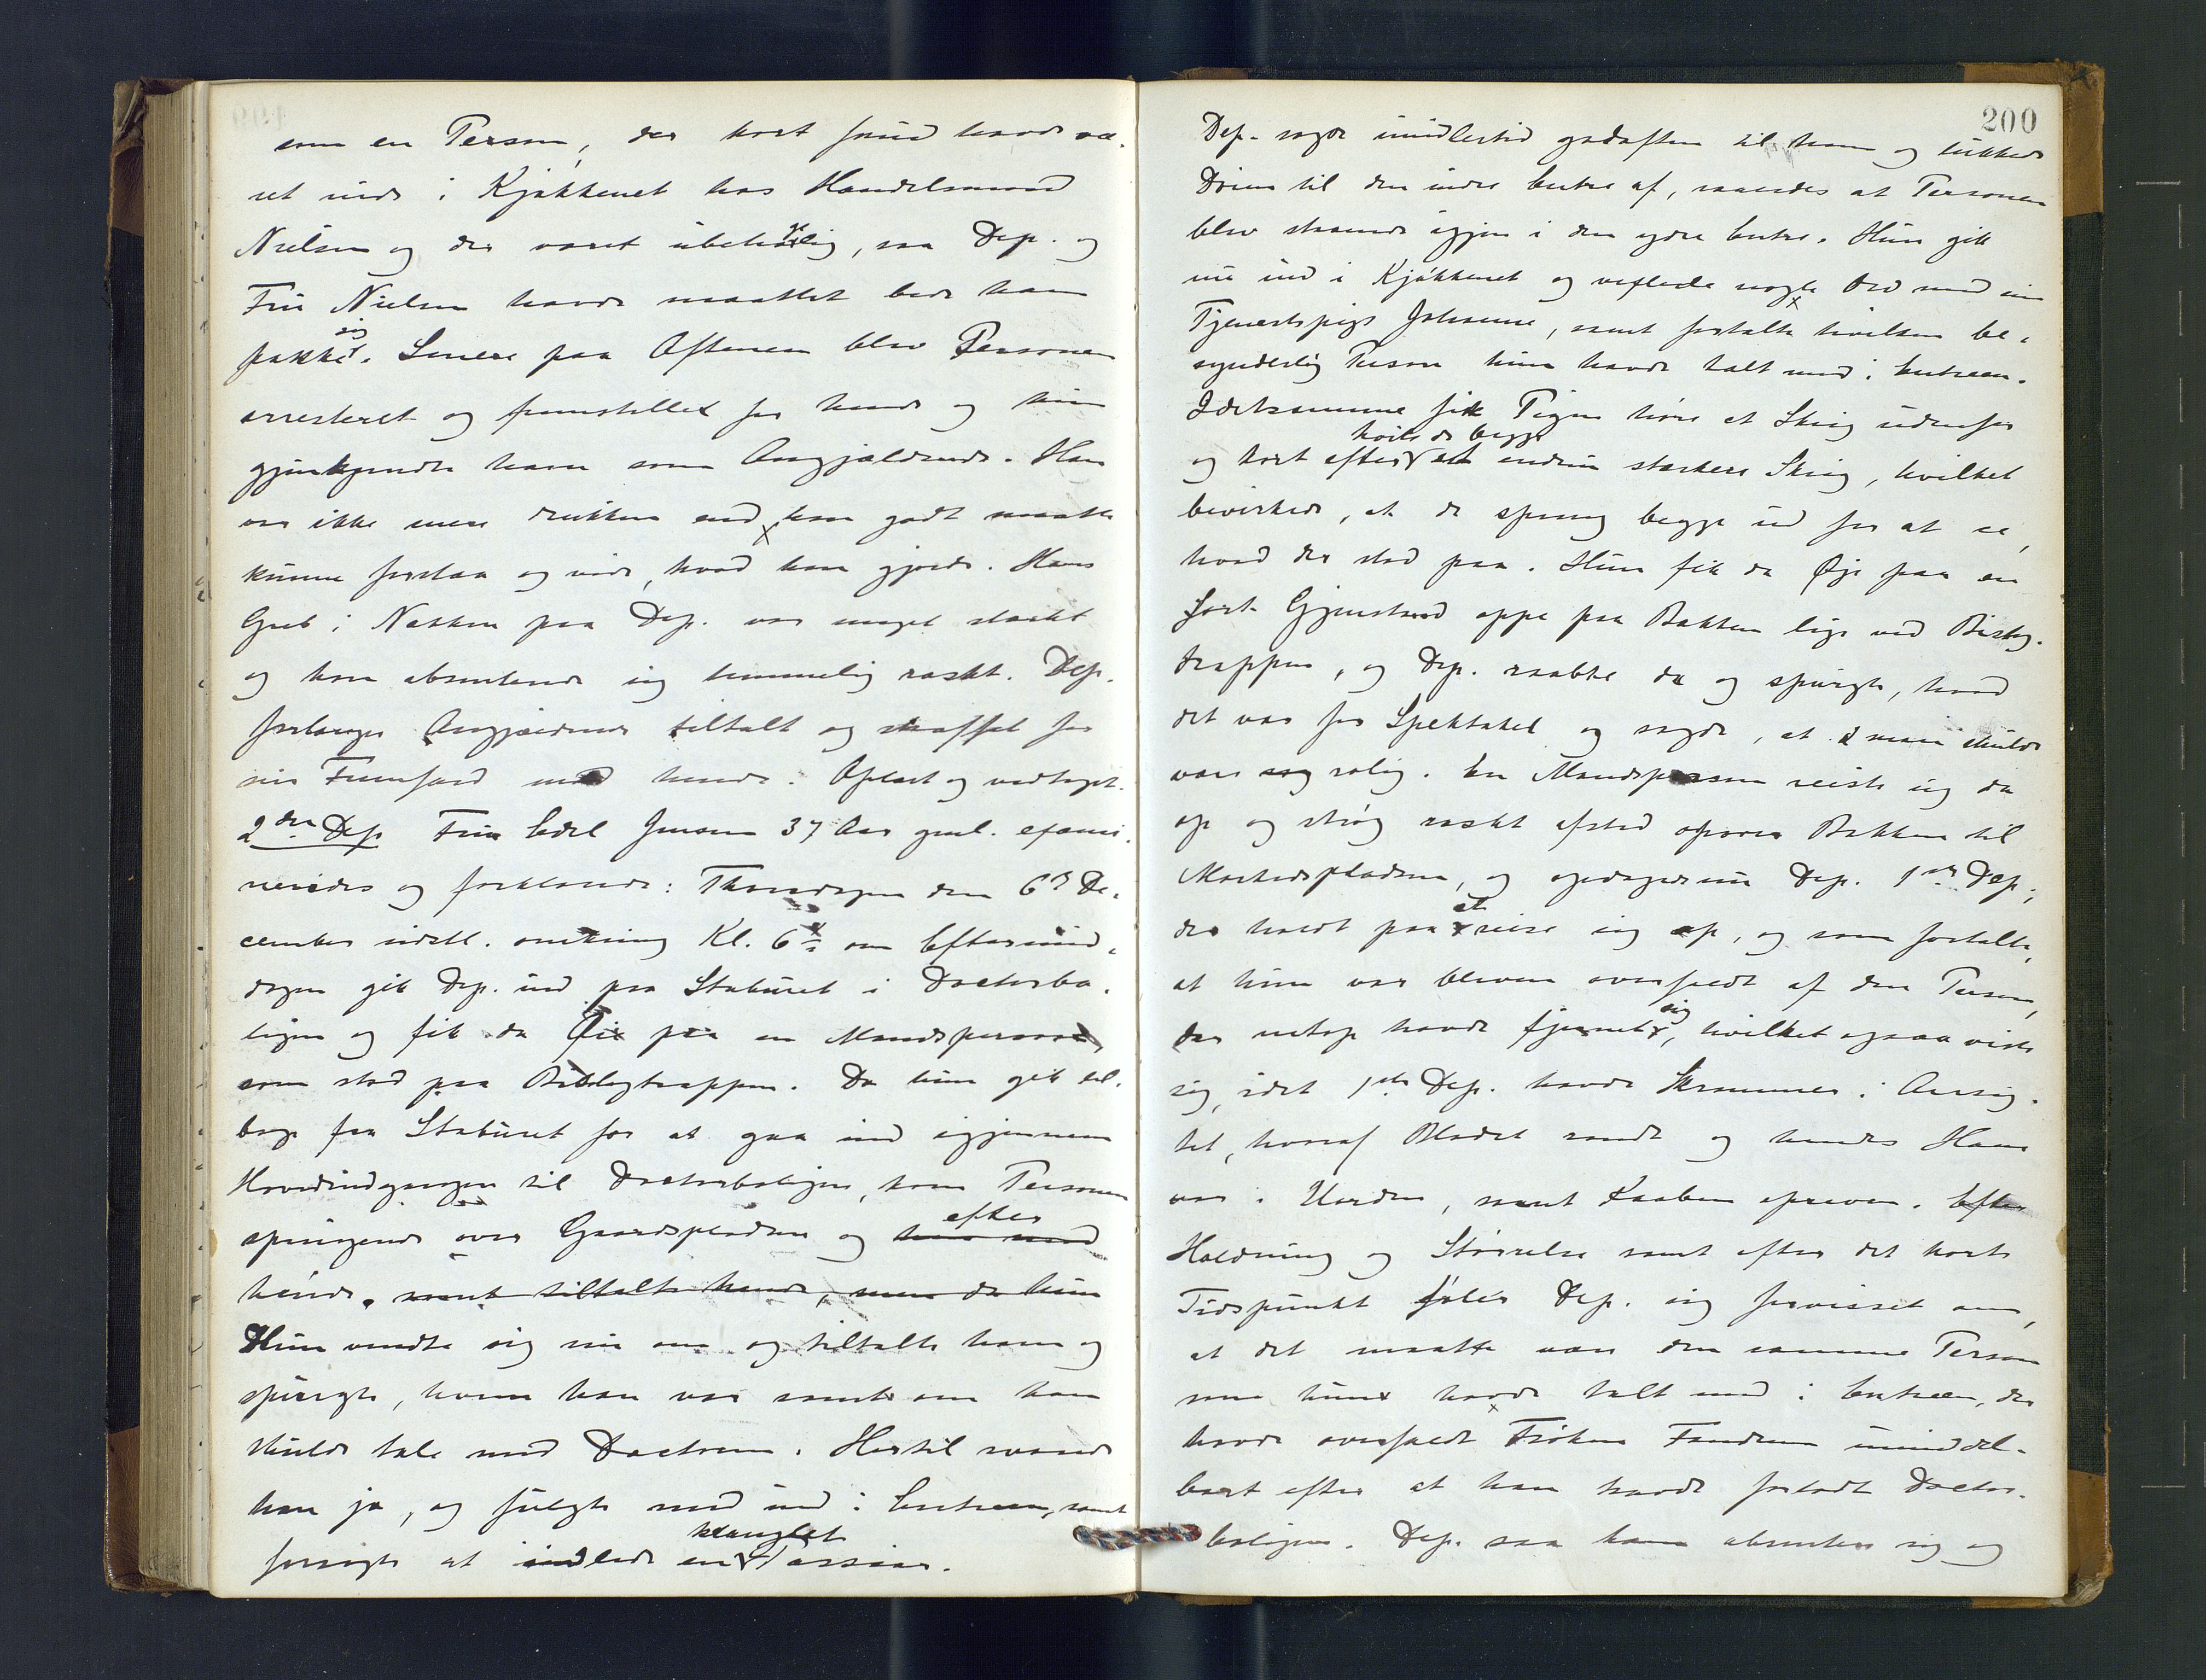 som en Person, der kort forud havde væ-
ret inde i Kjøkkenet hos Handelsmand
Nielsen og der været ubehøvlig, saa Dep. og
Fru Nielsen havde maattet bede ham
pakke sig. Senere paa Aftenen blev Personen
arresteret og fremstillet for hende og hun
gjenkjendte ham som Angjældende. Han
var ikke mere drukken end han godt maatte
kunne forstaa og vide, hvad han gjorde. Hans
Greb i Nakken paa Dep. var meget stærkt
og han absenterede sig temmelig raskt. Dep.
forlanger Angjældende tiltalt og straffet for
sin Fremfærd mod hende. Oplæst og vedtaget.
2den Dep Fru Edel Jensen 37 Aar gml. exami-
neredes og forklarede: Thorsdagen den 6te De-
cember sidstl. omkring Kl. 6 om Eftermid-
dagen gik Dep. ud paa Staburet i Doctorbo-
ligen og fik da Øie paa en Mandsperson,
som stod paa Bislagtrappen. Da hun gik til-
bage fra Staburet for at gaa ind igjennem
Hovedindgangen til Doctorboligen, kom Personen
springende over Gaardspladsen og efter
hende. samt tiltalte hende, men da hun
Hun vendte sig nu om og tiltalte ham og
spurgte, hvem han var samt om han
skulde tale med Doctoren. Hertil svarede
han ja, og fulgte med ind i Entreen, samt
forsøgte at indlede en klanglet Passiar.
200
Dep. sagde imidlertid godaften til ham og lukkede
Døren til den indre Entre af, saaledes at Personen
blev staaende igjen i den ydre Entre. Hun gik
nu ind i Kjøkkenet og vexlede nogle Ord med sin
Tjenestepige Johanne, samt fortalte hvilken be-
synderlig Person hun havde talt med i Entreen.
Idetsamme fik Pigen høre et Skrig udenfor
og kort efter hørte de begge et endnu stærkere Skrig, hvilket
bevirkede, at de sprang begge ud for at se,
hvad der stod paa. Hun fik da Øje paa en
sort Gjenstand oppe paa Bakken lige ved Bislag-
trappen, og Dep. raabte da og spurgte, hvad
det var for Spektakel og sagde, at man skulde
være rolig. En Mandsperson reiste sig da
op og strøg raskt afsted opover Bakken til
Markedspladsen, og opdagede nu Dep. 1ste Dep.,
der holdt paa at reise sig op, og som fortalte,
at hun var bleven overfaldt af den Person,
der netop havde fjernet sig, hvilket ogsaa viste
sig, idet 1ste Dep. havde Skrammer i Ansig-
tet, hvoraf Blodet randt og hendes Haar
var i Uorden, samt Kaaben opreven. Efter
Holdning og Størrelse samt efter det korte
Tidspunkt føler Dep. sig forvisset om,
at det maatte være den samme Person
som hun havde talt med i Entreen, der
havde overfaldt Frøken Fandrem umiddel-
bart efter at han havde forladt Doctor-
boligen. Dep. saa ham absentere sig og